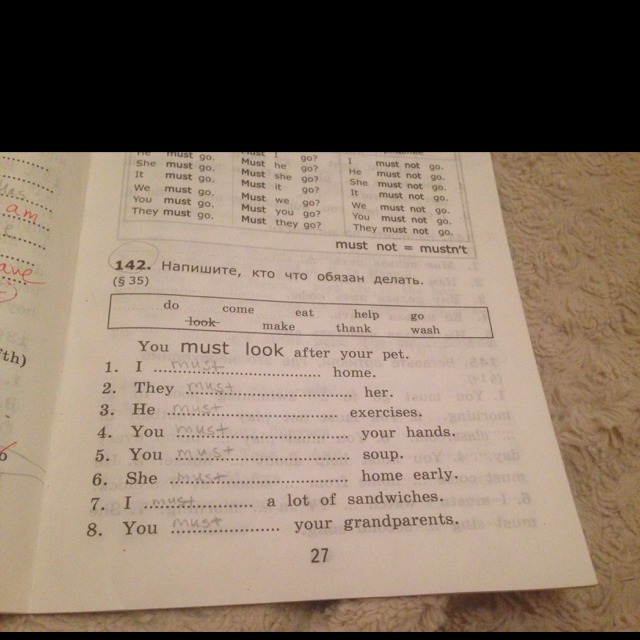 He must go.
She must go.
It must go.
We must go.
You must go.
They must go.
Must I go?
Must he go?
Must she go?
Must it go?
Must we go?
Must you go?
Must they go?
I must not go.
He must not go.
She must not go.
It must not go.
We must not go.
You must not go.
They must not go.
must not = mustn't
142. Напишите, кто что обязан делать.
(§ 35)
do come eat help go
look make thank wash
You must look after your pet.
1. I must home.
2. They must her.
3. He must exercises.
4. You must your hands.
5. You must soup.
6. She must home early.
7. I must a lot of sandwiches.
8. You must your grandparents.
27
am